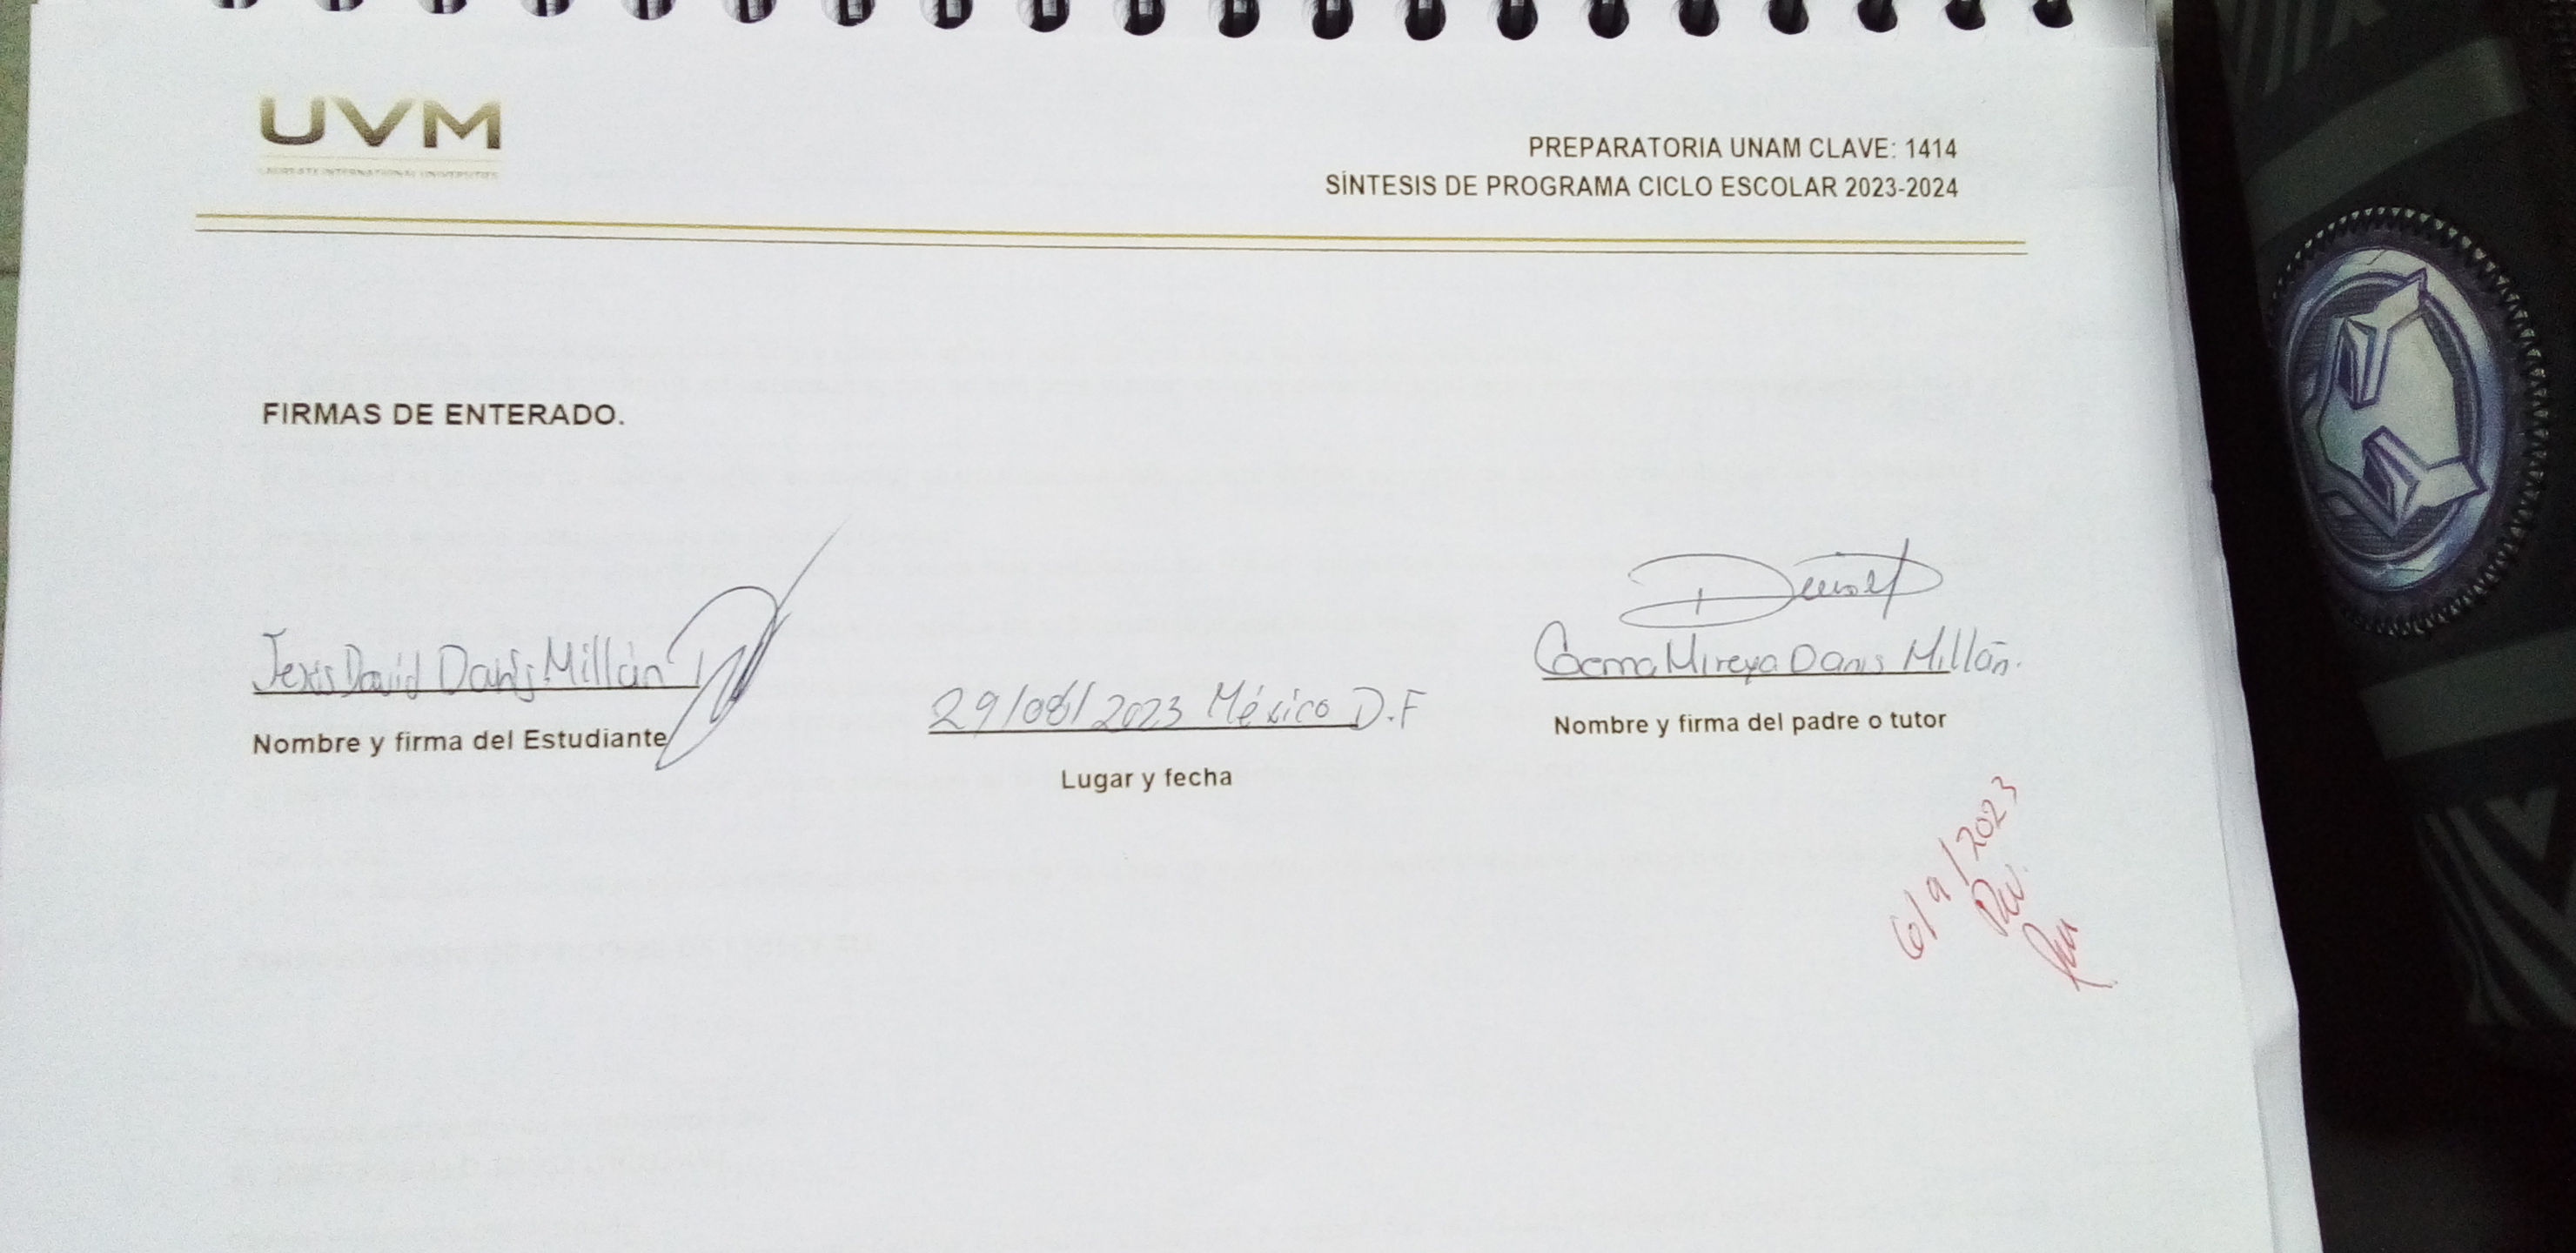 UVM
LAUREATE INTERNATIONAL UNIVERSITIES
PREPARATORIA UNAM CLAVE: 1414
SÍNTESIS DE PROGRAMA CICLO ESCOLAR 2023-2024
FIRMAS DE ENTERADO.
Jesús David Danís Millán
Nombre y firma del Estudiante
29/08/2023 México D.F
Lugar y fecha
Mireya Danis Millán.
Nombre y firma del padre o tutor
6/9/2023